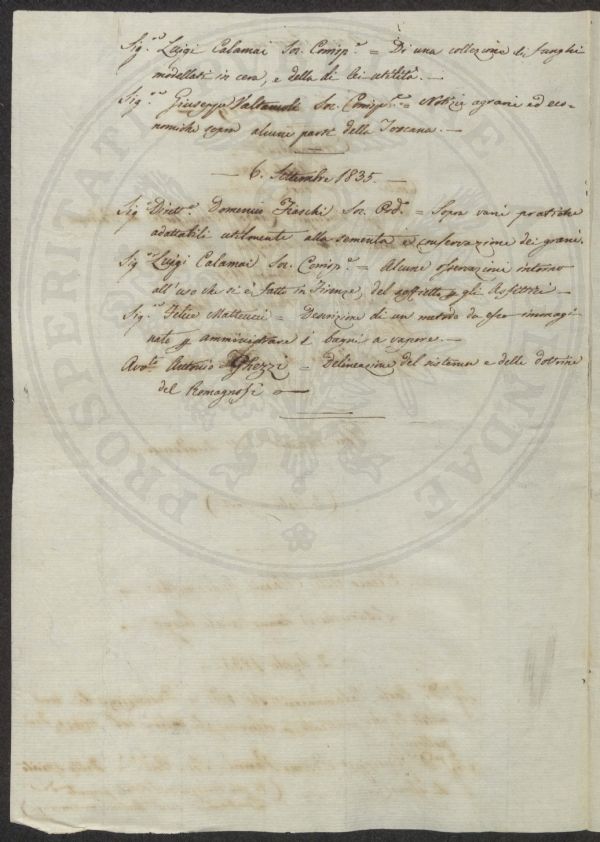 Sig.r Luigi Calamai Soc. Corrisp.e = Di una collezione di funghi
modellati in cera, e della di lei utilità. —
Sig.r Giuseppe Valtancoli Soc. Corrisp.e = Notizie agrarie ed eco-
nomiche sopra alcune parti della Toscana. —
— 6. Settembre 1835. —
Sig. Dirett.e Domenico Fiaschi Soc. Ord.o = Sopra varie pratiche
adattabili utilmente alla sementa e conservazione dei grani.
Sig.r Luigi Calamai Soc. Corrisp.e = Alcune osservazioni intorno
all'uso che si è fatto in Firenze, del p gli
Sig.r Felice Matteucci = Descrizione di un metodo da esso immagi-
nato p amministrare i bagni a vapore. —
Avv.to Antonio Ghezzi = Delineazione del sistema e delle dottrine
del Romagnosi —
PROSPERITATI AUGENDAE